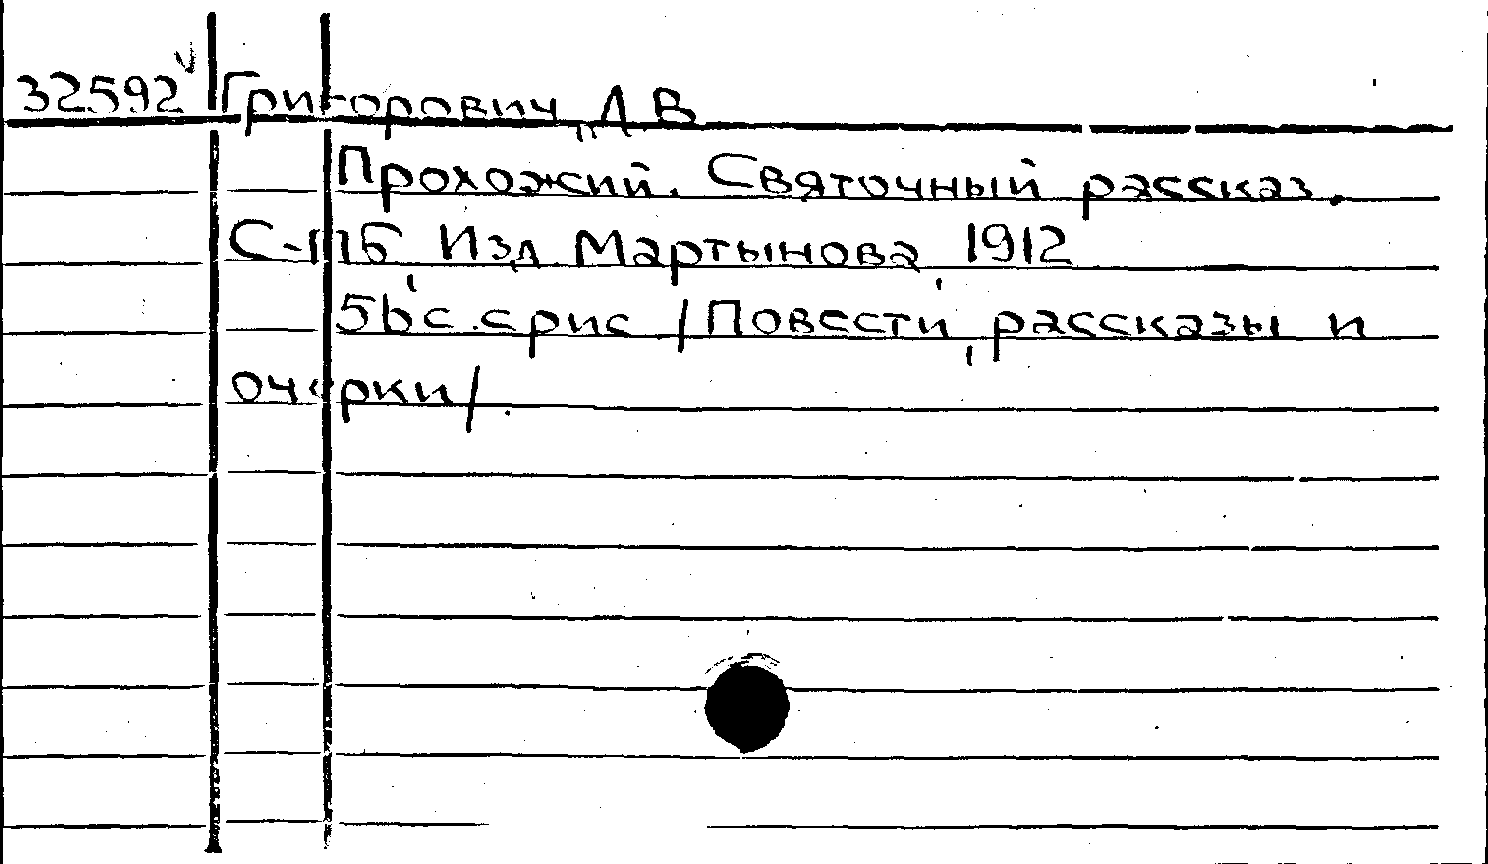 32592 Григорович, Д.В.
Прохожий. Святочный рассказ.
С-ПБ Изд. Мартынова, 1912
56 с. с рис /Повести, рассказы и
очерки/.